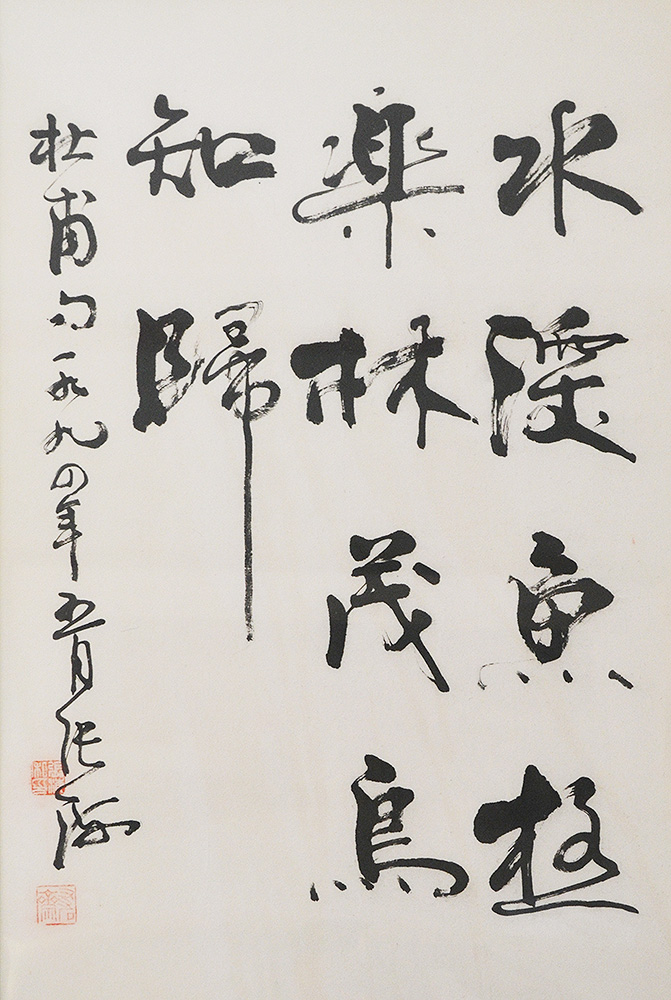 水深魚極
樂林茂鳥
知歸
杜甫句一九九四年五月张